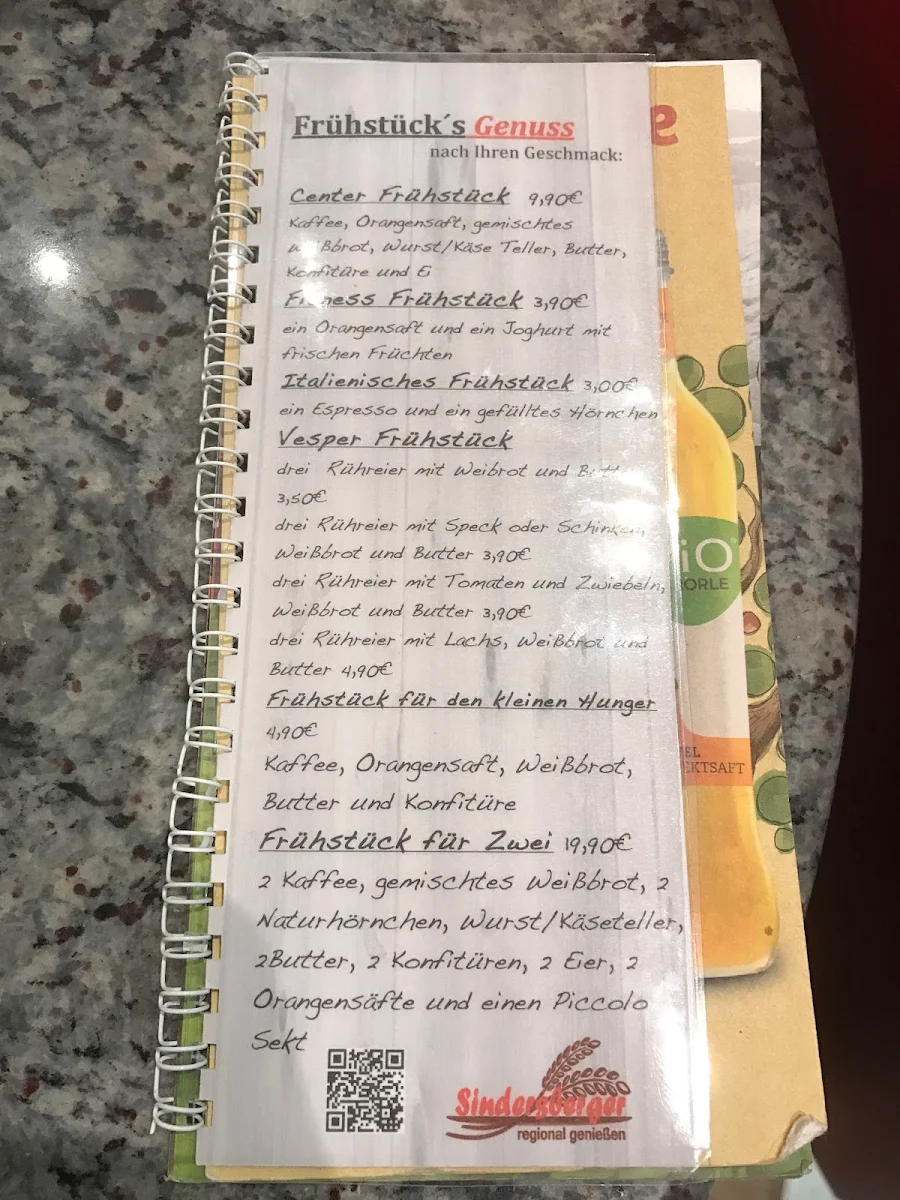 Frühstück´s Genuss
nach Ihren Geschmack:
Center Frühstück 9,90€
Kaffee, Orangensaft, gemischtes
Weißbrot, Wurst/Käse Teller, Butter,
Konfitüre und Ei
Fitness Frühstück 3,90€
ein Orangensaft und ein Joghurt mit
frischen Früchten
Italienisches Frühstück 3,00€
ein Espresso und ein gefülltes Hörnchen
Vesper Frühstück
drei Rühreier mit Weibrot und Butter
3,50€
drei Rühreier mit Speck oder Schinken,
Weißbrot und Butter 3,90€
drei Rühreier mit Tomaten und Zwiebeln,
Weißbrot und Butter 3,90€
drei Rühreier mit Lachs, Weißbrot und
Butter 4,90€
Frühstück für den kleinen Hunger
4,90€
Kaffee, Orangensaft, Weißbrot,
Butter und Konfitüre
Frühstück für Zwei 19,90€
2 Kaffee, gemischtes Weißbrot, 2
Naturhörnchen, Wurst/Käseteller,
2Butter, 2 Konfitüren, 2 Eier, 2
Orangensäfte und einen Piccolo
Sekt
Sindersberger
regional genießen
e
iO
ORLE
EL
EKTSAFT